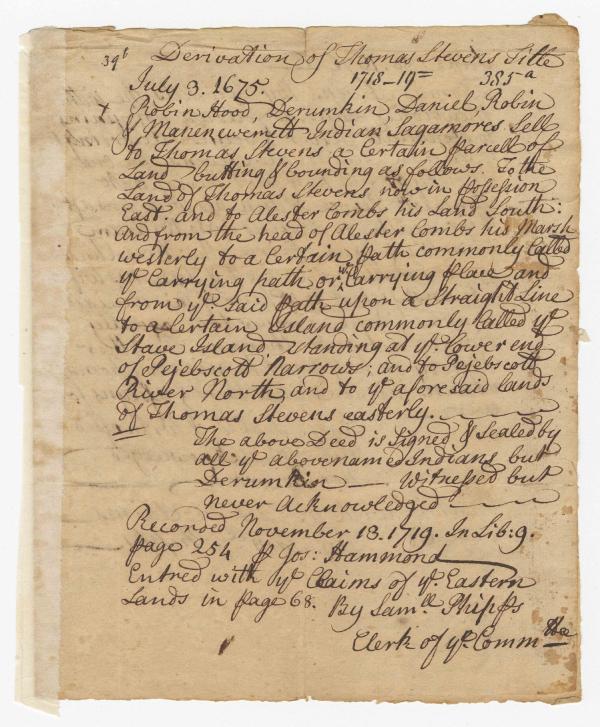 39b Derivation of Thomas Stevens Title
July 3. 1675. 1718-19= 385a
+ Robin Hood, Derumkin, Daniel, Robin
& Manenewemett Indian Sagamores Sell
to Thomas Stevens a Certain parcell of
Land butting & bounding as follows. To the
Land of Thomas Stevens now in possession
East: and to Alester Combs his Land South:
and from the head of Alester Combs his Marsh
westerly to a Certain path commonly Called
ye Carrying path or Carrying place and
from ye said path upon a Straight Line
to a Certain Island commonly Called ye
Stave Island, Standing at ye lower end
of Pejebscott Narrows; and to Pejebscott
River North, and to ye aforesaid lands
of Thomas Stevens easterly.
The above Deed is Signed & Sealed by
all ye abovenamed Indians but
Derumkin — Witnessed but
never Acknowledged
Recorded November 13. 1719. In Lib: 9.
page 254 p Jos: Hammond
Entred with ye Claims of ye Eastern
Lands in page 68. By Samll Phipps
Clerk of ye Commttee